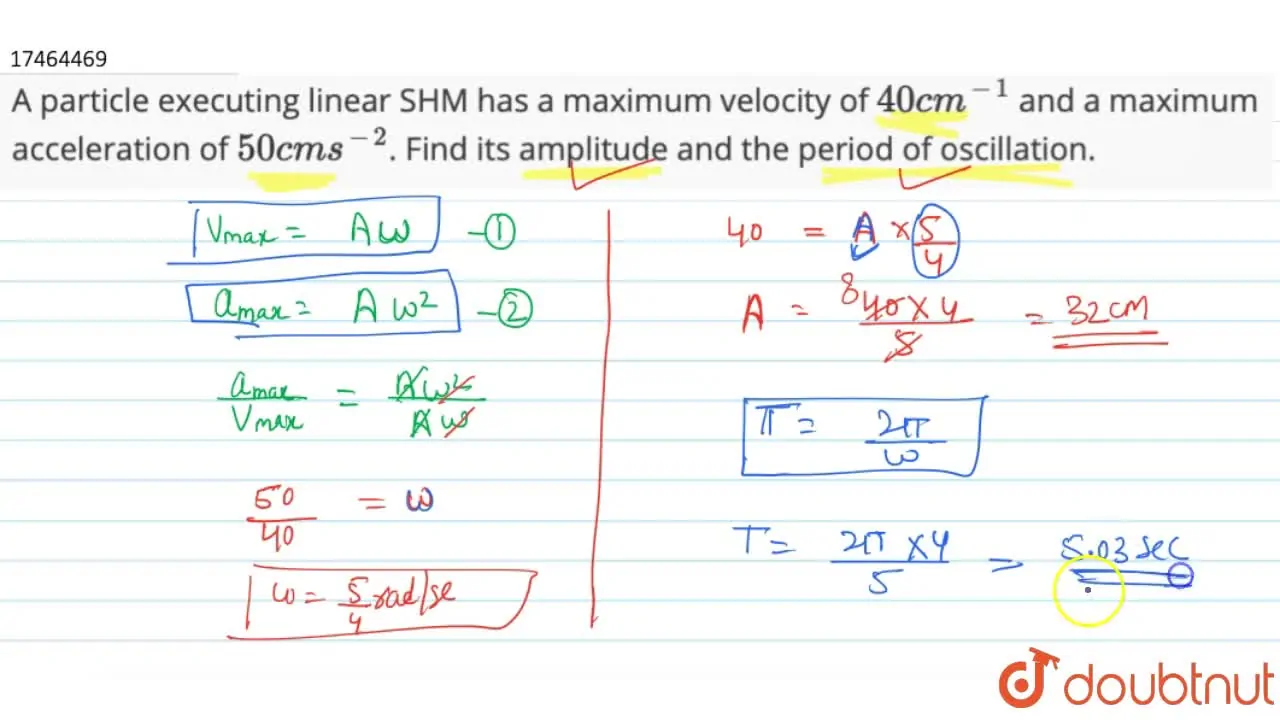 17464469
A particle executing linear SHM has a maximum velocity of 40cm⁻¹ and a maximum
acceleration of 50cms⁻². Find its amplitude and the period of oscillation.
Vmax = Aω -①
amax = Aω² -②
amax/Vmax = Aω²/Aω
50/40 = ω
ω = 5/4 rad/se
40 = A × 5/4
A = 8 40×4/5 = 32cm
T = 2π/ω
T = 2π×4/5 = 5.03 sec
doubtnut